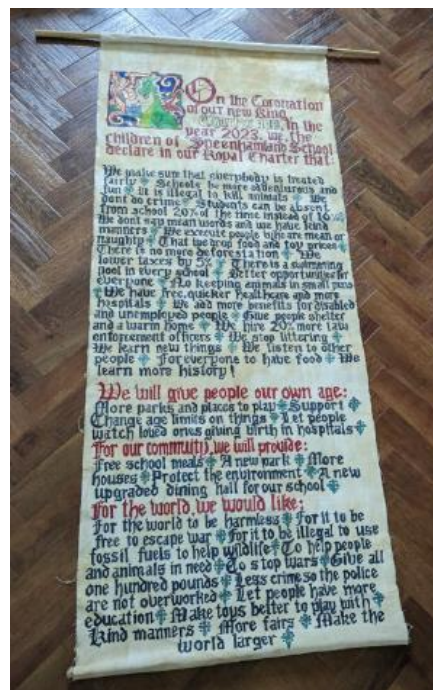 On the Coronation
of our new King
Charles III, in the
year 2023, we, the
children of Speenhamland School
declare in our Royal Charter that:
We make sure that everybody is treated
fairly Schools be more adventurous and
fun It is illegal to kill animals We
dont do crime Students can be absent
from school 20% of the time instead of 10%
We dont say mean words and we have kind
manners We execute people who are mean or
naughty That we drop food and toy prices
There is no more deforestation We
lower taxes by 5% There is a swimming
pool in every school Better opportunities for
everyone No keeping animals in small pens
We have free, quicker healthcare and more
hospitals We add more benefits for disabled
and unemployed people Give people shelter
and a warm home We hire 20% more law
enforcement officers We stop littering
We learn new things We listen to other
people For everyone to have food We
learn more history!
We will give people our own age:
More parks and places to play Support
Change age limits on things Let people
watch loved ones giving birth in hospitals
For our community, we will provide:
Free school meals A new park More
houses Protect the environment A new
upgraded dining hall for our school
For the world, we would like:
For the world to be harmless For it to be
free to escape war For it to be illegal to use
fossil fuels to help wildlife To help people
and animals in need To stop wars Give all
one hundred pounds Less crime so the police
are not overworked Let people have more
education Make toys better to play with
Kind manners More fairs Make the
world larger